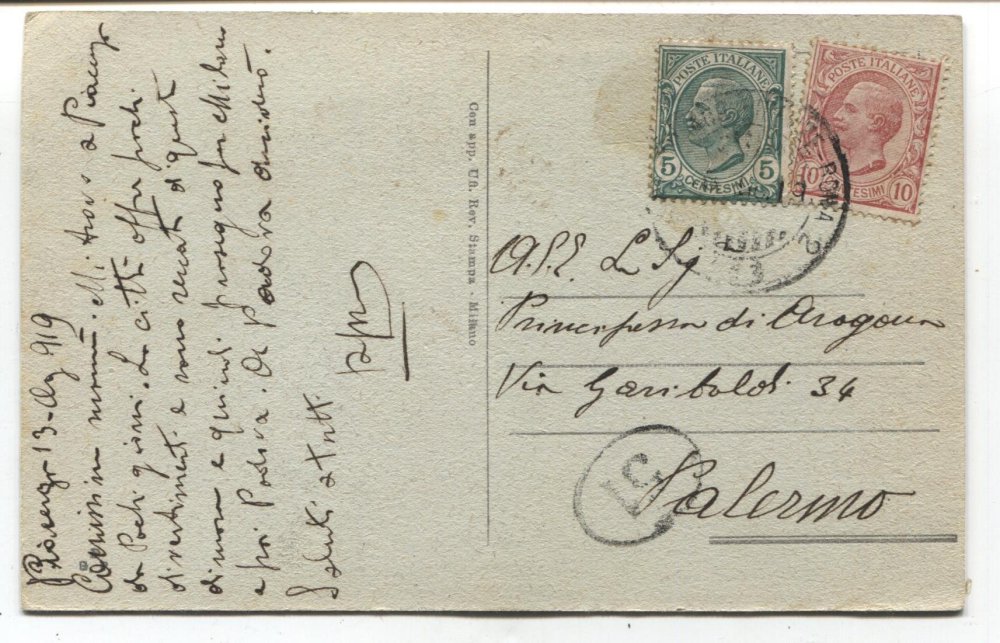 Piacenza 13-Ag 919
Carissima mamma. Mi trovo a Piacenza
da pochi giorni. La città offre pochi
divertimenti e sono seccato di questa
dimora e quindi proseguo per Milano
e poi Padova. Di Padova ti scriverò.
Saluti a tutti
Con app. Uff. Rev. Stampa - Milano
POSTE ITALIANE
5 5
CENTESIMI
POSTE ITALIANE
10 10
CENTESIMI
ROMA
A.S.E. La Sig
Principessa di Aragona
Via Garibaldi 34
Salermo